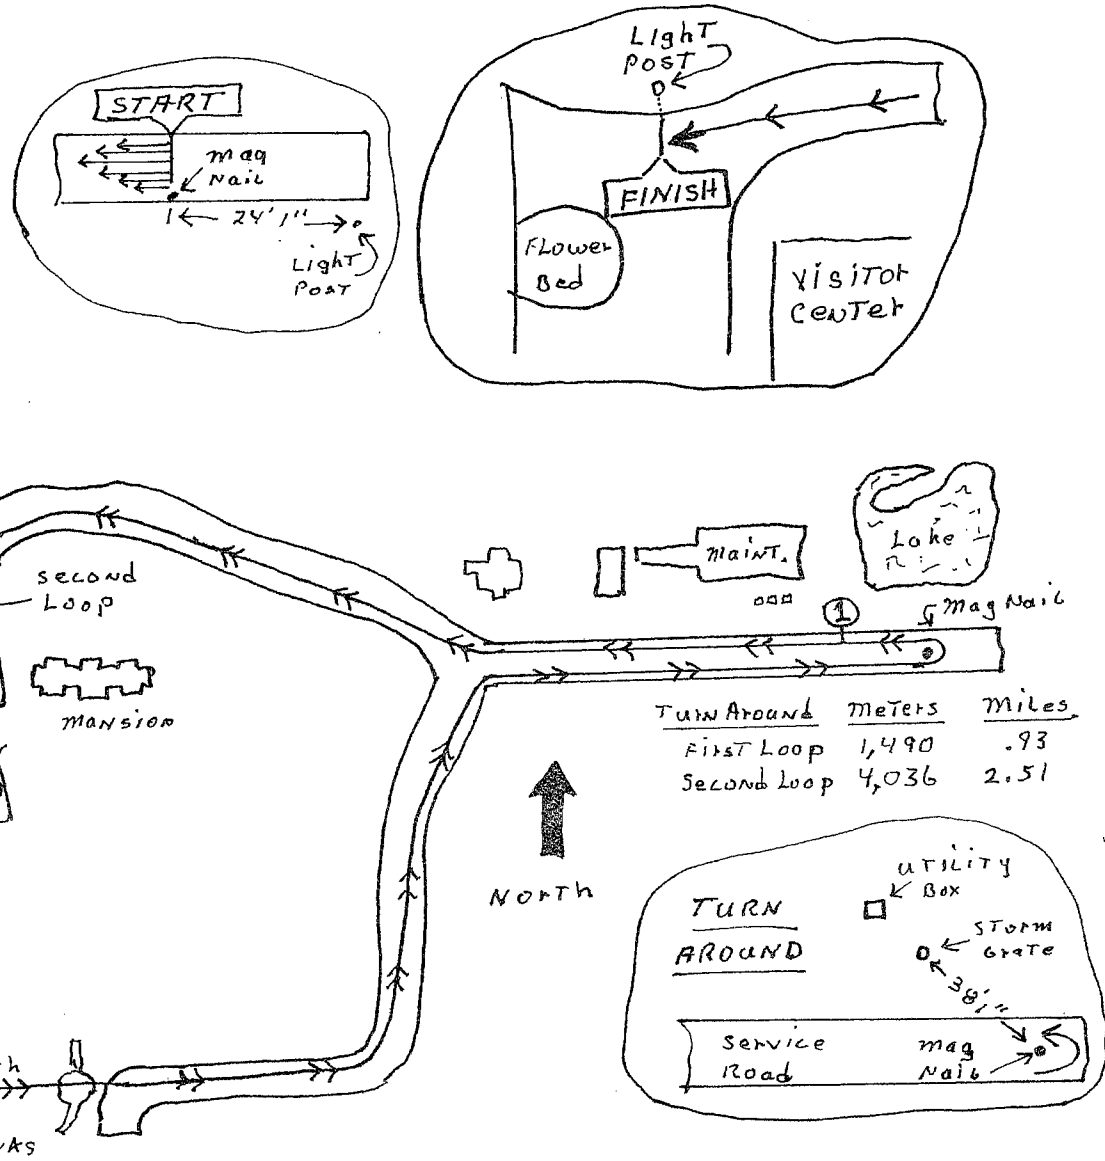 START
mag
nail
24' 1"
Light
Post
Light
Post
FINISH
Flower
Bed
Visitor
Center
Second
Loop
mansion
maint.
Lake
1
Mag Nail
Turn Around Meters Miles
First Loop 1,490 .93
Second Loop 4,036 2.51
North
TURN
AROUND
Utility
Box
Storm
Grate
38' 1"
Service
Road
mag
Nail